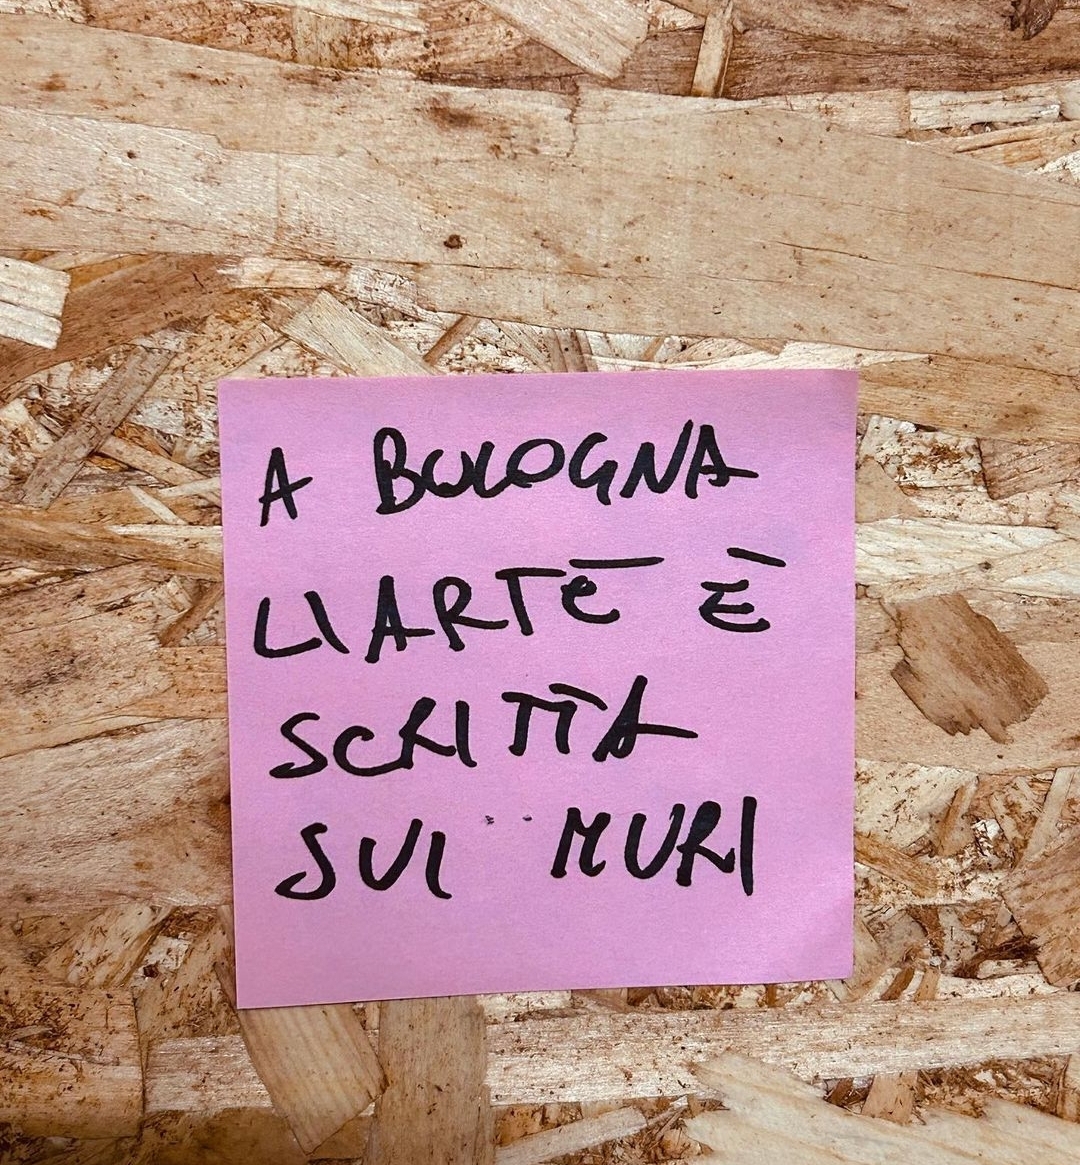 A BOLOGNA
L'ARTE È
SCRITTA
SUI MURI